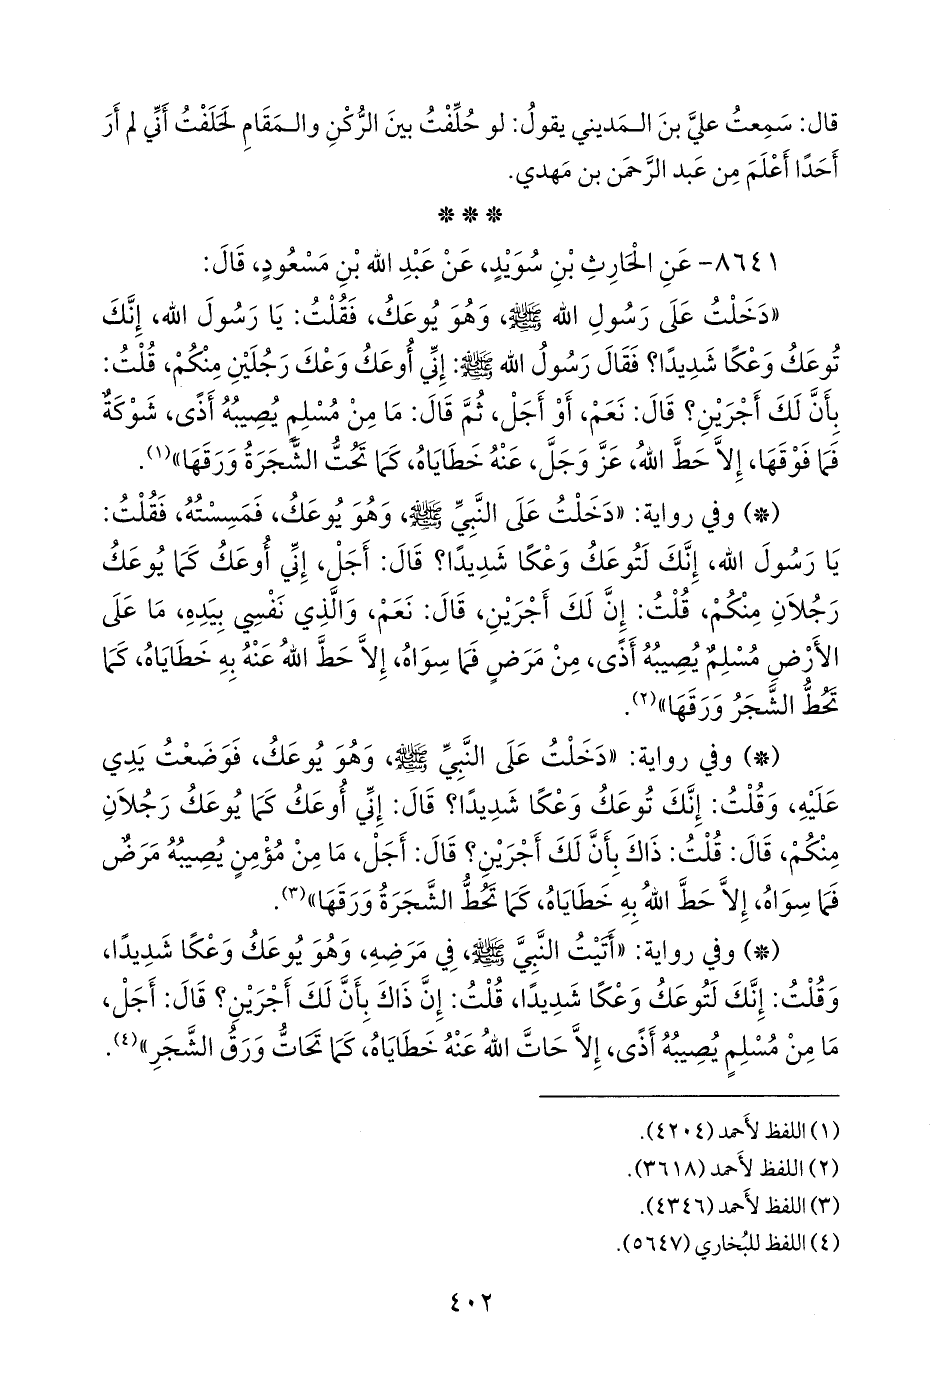 قال: سَمِعتُ عليَّ بنَ الـمَديني يقولُ: لو حُلِّفْتُ بينَ الرُّكْنِ والـمَقَامِ لَحَلَفْتُ أَنِّي لم أَرَ
أَحَدًا أَعْلَمَ مِن عَبد الرَّحمَن بن مَهدي.
* * *
٨٦٤١- عَنِ الْحَارِثِ بْنِ سُوَيْدٍ، عَنْ عَبْدِ الله بْنِ مَسْعُودٍ، قَالَ:
«دَخَلْتُ عَلَى رَسُولِ الله ﷺ، وَهُوَ يُوعَكُ، فَقُلْتُ: يَا رَسُولَ الله، إِنَّكَ
تُوعَكُ وَعْكًا شَدِيدًا؟ فَقَالَ رَسُولُ الله ﷺ: إِنِّي أُوعَكُ وَعْكَ رَجُلَيْنِ مِنْكُمْ، قُلْتُ:
بِأَنَّ لَكَ أَجْرَيْنِ؟ قَالَ: نَعَمْ، أَوْ أَجَلْ، ثُمَّ قَالَ: مَا مِنْ مُسْلِمٍ يُصِيبُهُ أَذًى، شَوْكَةٌ
فَمَا فَوْقَهَا، إِلاَّ حَطَّ اللهُ، عَزَّ وَجَلَّ، عَنْهُ خَطَايَاهُ، كَمَا تَحُتُّ الشَّجَرَةُ وَرَقَهَا»(١).
(*) وفي رواية: «دَخَلْتُ عَلَى النَّبِيِّ ﷺ، وَهُوَ يُوعَكُ، فَمَسِسْتُهُ، فَقُلْتُ:
يَا رَسُولَ الله، إِنَّكَ لَتُوعَكُ وَعْكًا شَدِيدًا؟ قَالَ: أَجَلْ، إِنِّي أُوعَكُ كَمَا يُوعَكُ
رَجُلاَنِ مِنْكُمْ، قُلْتُ: إِنَّ لَكَ أَجْرَيْنِ، قَالَ: نَعَمْ، وَالَّذِي نَفْسِي بِيَدِهِ، مَا عَلَى
الأَرْضِ مُسْلِمٌ يُصِيبُهُ أَذًى، مِنْ مَرَضٍ فَمَا سِوَاهُ، إِلاَّ حَطَّ اللهُ عَنْهُ بِهِ خَطَايَاهُ، كَمَا
تَحُطُّ الشَّجَرُ وَرَقَهَا»(٢).
(*) وفي رواية: «دَخَلْتُ عَلَى النَّبِيِّ ﷺ، وَهُوَ يُوعَكُ، فَوَضَعْتُ يَدِي
عَلَيْهِ، وَقُلْتُ: إِنَّكَ تُوعَكُ وَعْكًا شَدِيدًا؟ قَالَ: إِنِّي أُوعَكُ كَمَا يُوعَكُ رَجُلاَنِ
مِنْكُمْ، قَالَ: قُلْتُ: ذَاكَ بِأَنَّ لَكَ أَجْرَيْنِ؟ قَالَ: أَجَلْ، مَا مِنْ مُؤْمِنٍ يُصِيبُهُ مَرَضٌ
فَمَا سِوَاهُ، إِلاَّ حَطَّ اللهُ بِهِ خَطَايَاهُ، كَمَا تَحُطُّ الشَّجَرَةُ وَرَقَهَا»(٣).
(*) وفي رواية: «أَتَيْتُ النَّبِيَّ ﷺ، فِي مَرَضِهِ، وَهُوَ يُوعَكُ وَعْكًا شَدِيدًا،
وَقُلْتُ: إِنَّكَ لَتُوعَكُ وَعْكًا شَدِيدًا، قُلْتُ: إِنَّ ذَاكَ بِأَنَّ لَكَ أَجْرَيْنِ؟ قَالَ: أَجَلْ،
مَا مِنْ مُسْلِمٍ يُصِيبُهُ أَذًى، إِلاَّ حَاتَّ اللهُ عَنْهُ خَطَايَاهُ، كَمَا تَحَاتُّ وَرَقُ الشَّجَرِ»(٤).
(١) اللفظ لأَحمد (٤٢٠٤).
(٢) اللفظ لأَحمد (٣٦١٨).
(٣) اللفظ لأَحمد (٤٣٤٦).
(٤) اللفظ للبُخاري (٥٦٤٧).
٤٠٢